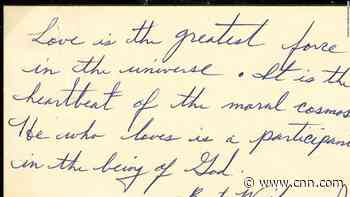 Love is the greatest force
in the universe. It is the
heartbeat of the moral cosmos
He who loves is a participan
in the being of God.
www.cnn.com